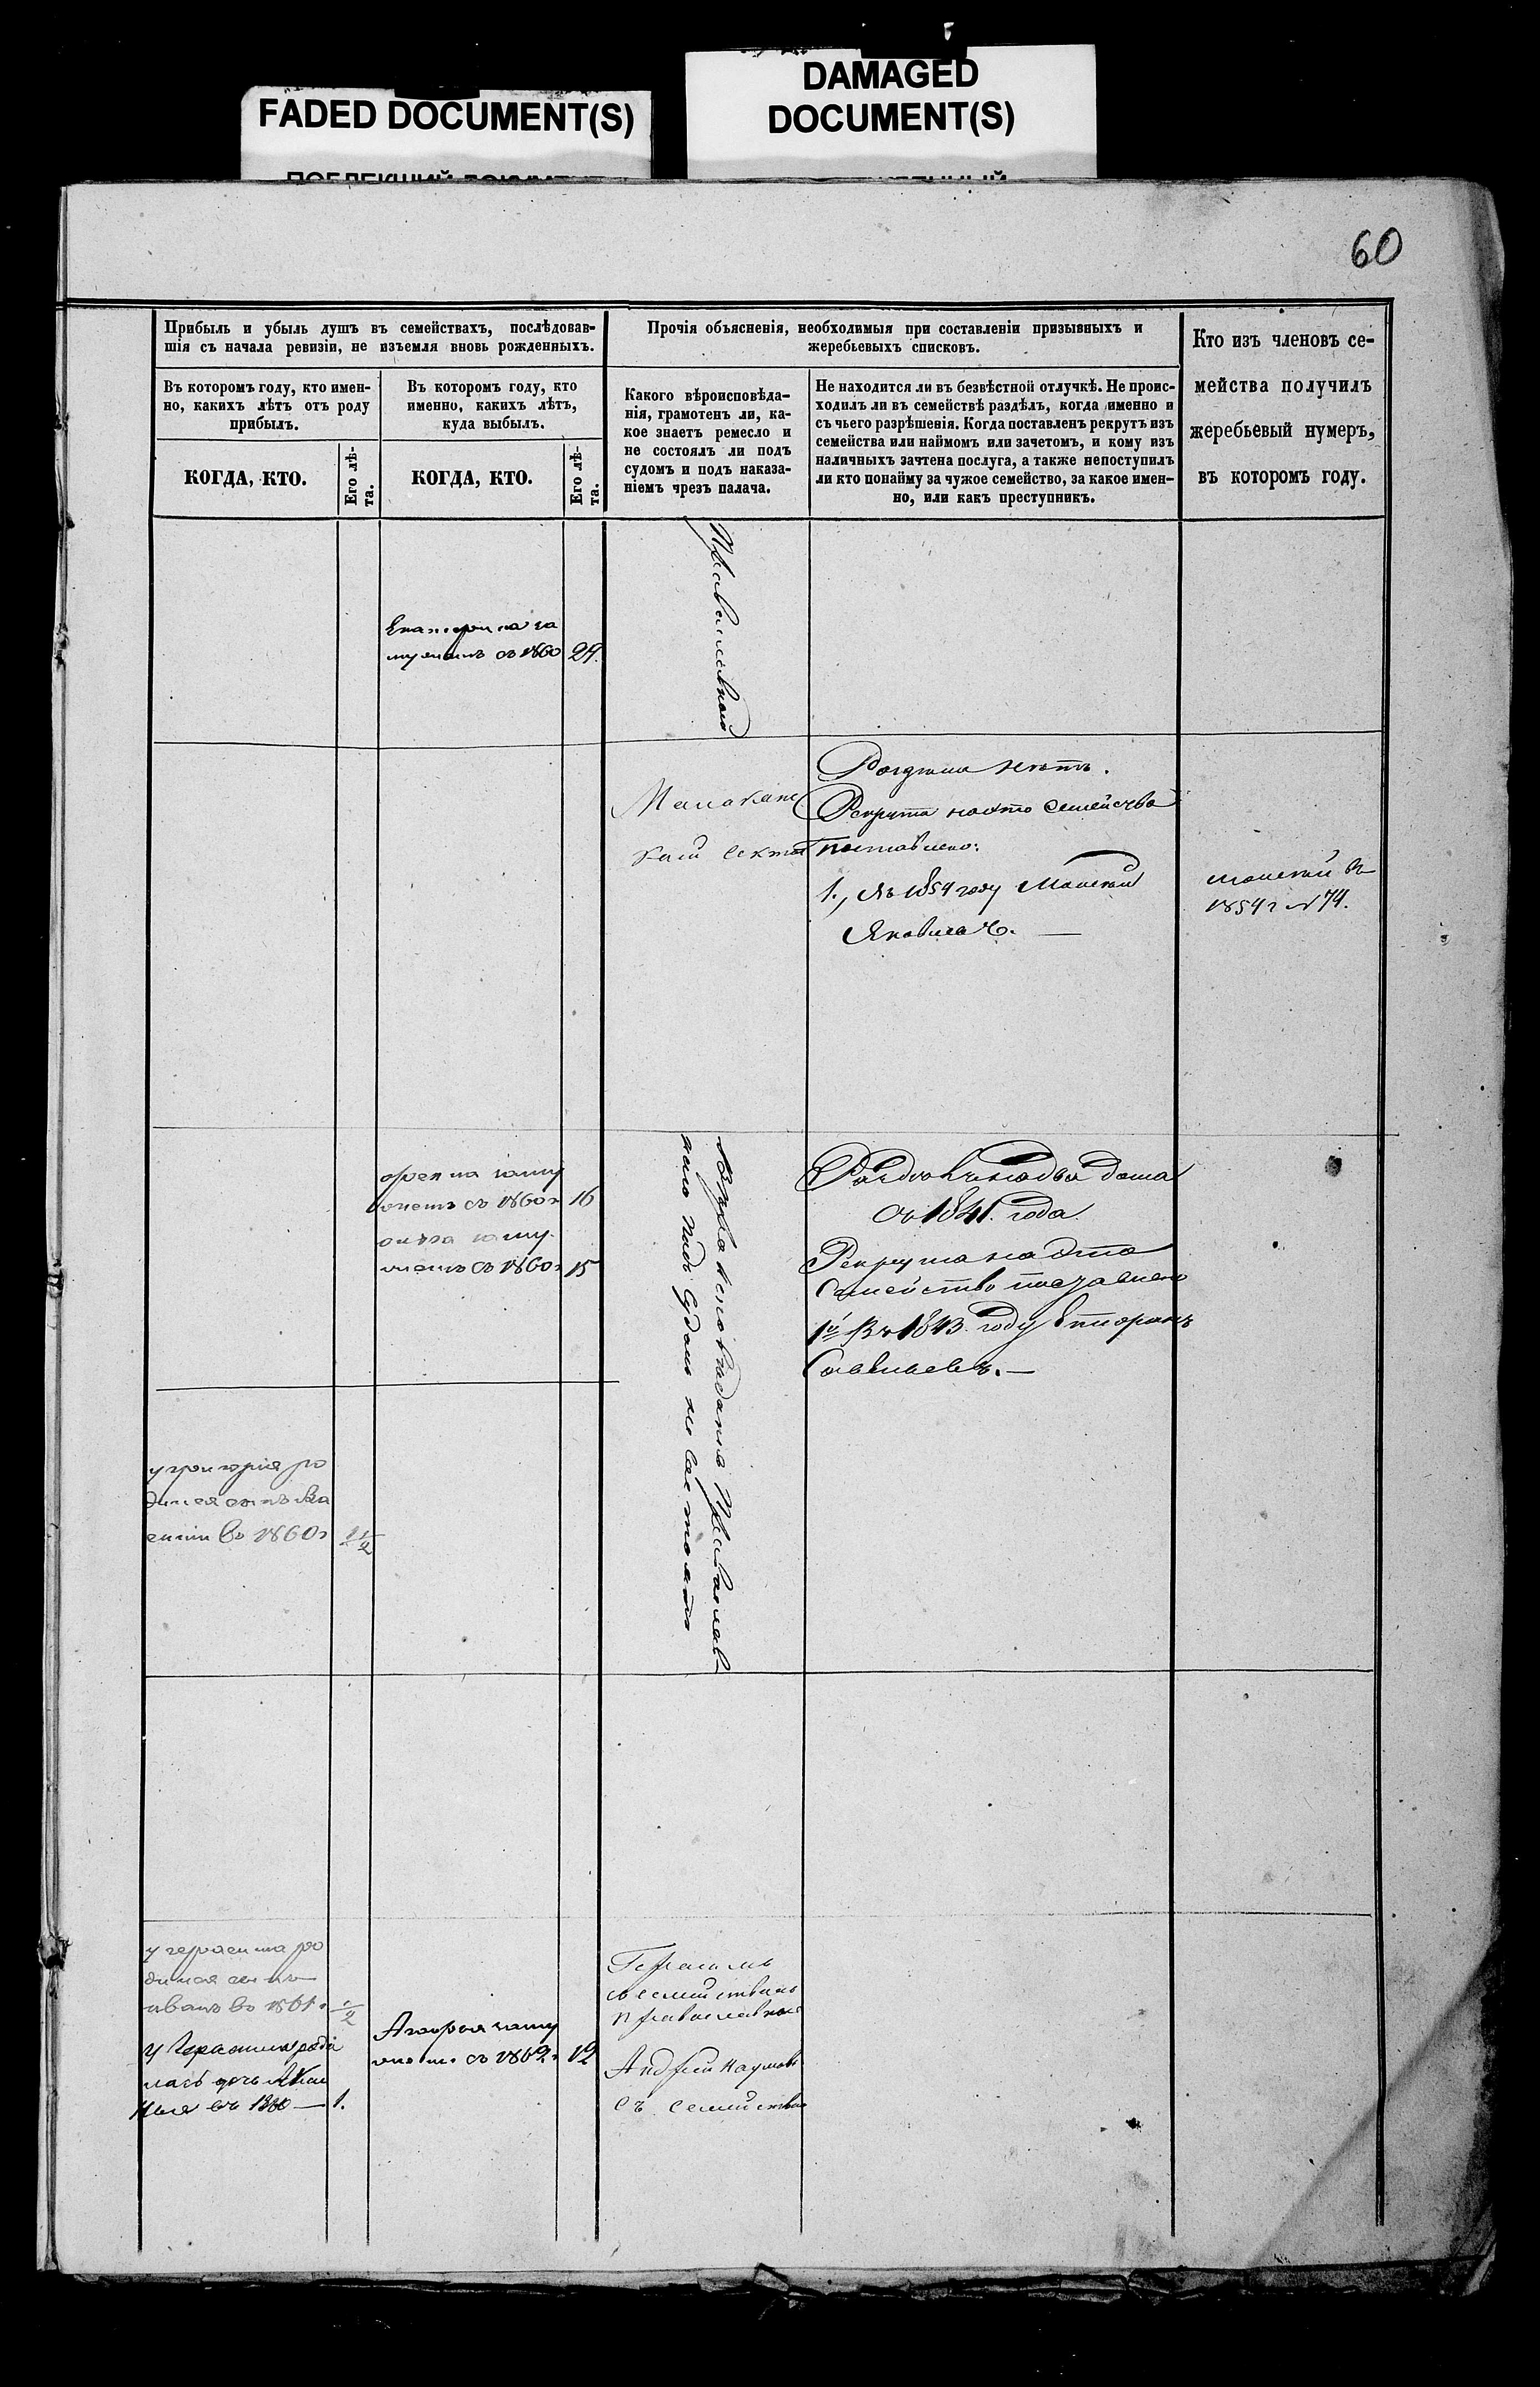 FADED DOCUMENT(S)
DAMAGED
DOCUMENT(S)
60
Прибыль и убыль душъ въ семействахъ, послѣдовав-
шія съ начала ревизіи, не изъемля вновь рожденныхъ.
Прочія объясненія, необходимыя при составленіи призывныхъ и
жеребьевыхъ списковъ.
Кто изъ членовъ се-
мейства получилъ
жеребьевый нумеръ,
въ которомъ году.
Въ которомъ году, кто имен-
но, какихъ лѣтъ отъ роду
прибылъ.
Въ которомъ году, кто
именно, какихъ лѣтъ,
куда выбылъ.
Какого вѣроисповѣда-
нія, грамотенъ ли, ка-
кое знаетъ ремесло и
не состоялъ ли подъ
судомъ и подъ наказа-
ніемъ чрезъ палача.
Не находится ли въ безвѣстной отлучкѣ. Не проис-
ходилъ ли въ семействѣ раздѣлъ, когда именно и
съ чьего разрѣшенія. Когда поставленъ рекрутъ изъ
семейства или наймомъ или зачетомъ, и кому изъ
наличныхъ зачтена послуга, а также непоступилъ
ли кто понайму за чужое семейство, за какое имен-
но, или какъ преступникъ.
КОГДА, КТО.
Его лѣ-
та.
КОГДА, КТО.
Его лѣ-
та.
Екатерина за
мужемъ съ 1860
29.
Православнаго
Малакан
ской секты
Раздела нетъ.
Рекрута на это семейство
поставлено:
1., Въ 1854 году Моисей
Яковлевъ.
Моисей въ
1854 г № 74.
замужемъ съ 1860 г
16
замужемъ съ 1860 г
15
православ
наго подъ судомъ не состоятъ
дома
съ 1841. года.
Рекрута на это
семейство
1й Въ 1843. году
Савельевъ.
у григорія ро
дился сынъ Ва
силий во 1860 г
1 1/2
у герасима ро
дился сынъ
иванъ во 1861 г
1/2
у Герасима роди
лась дочь
въ 1860
1.
замужемъ съ 1862 г
12
Герасимъ
съ семействомъ
православнаго
Андрей Наумовъ
съ семействомъ